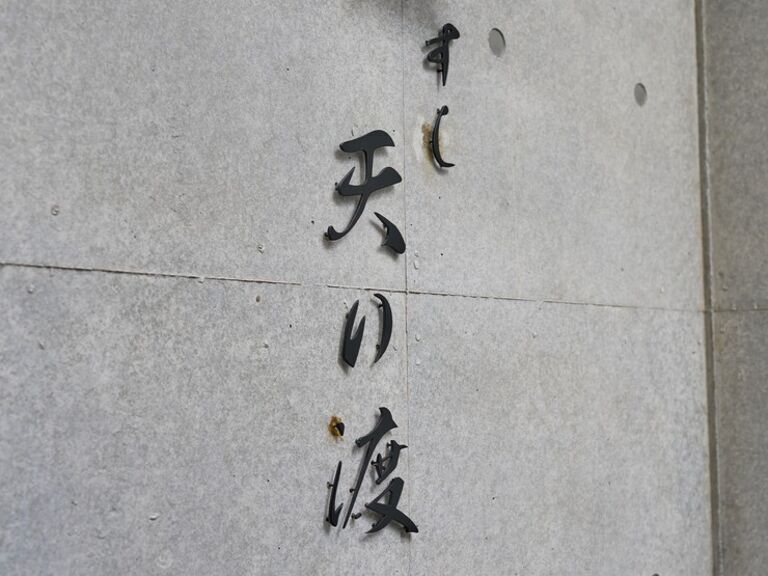 すし
天い渡